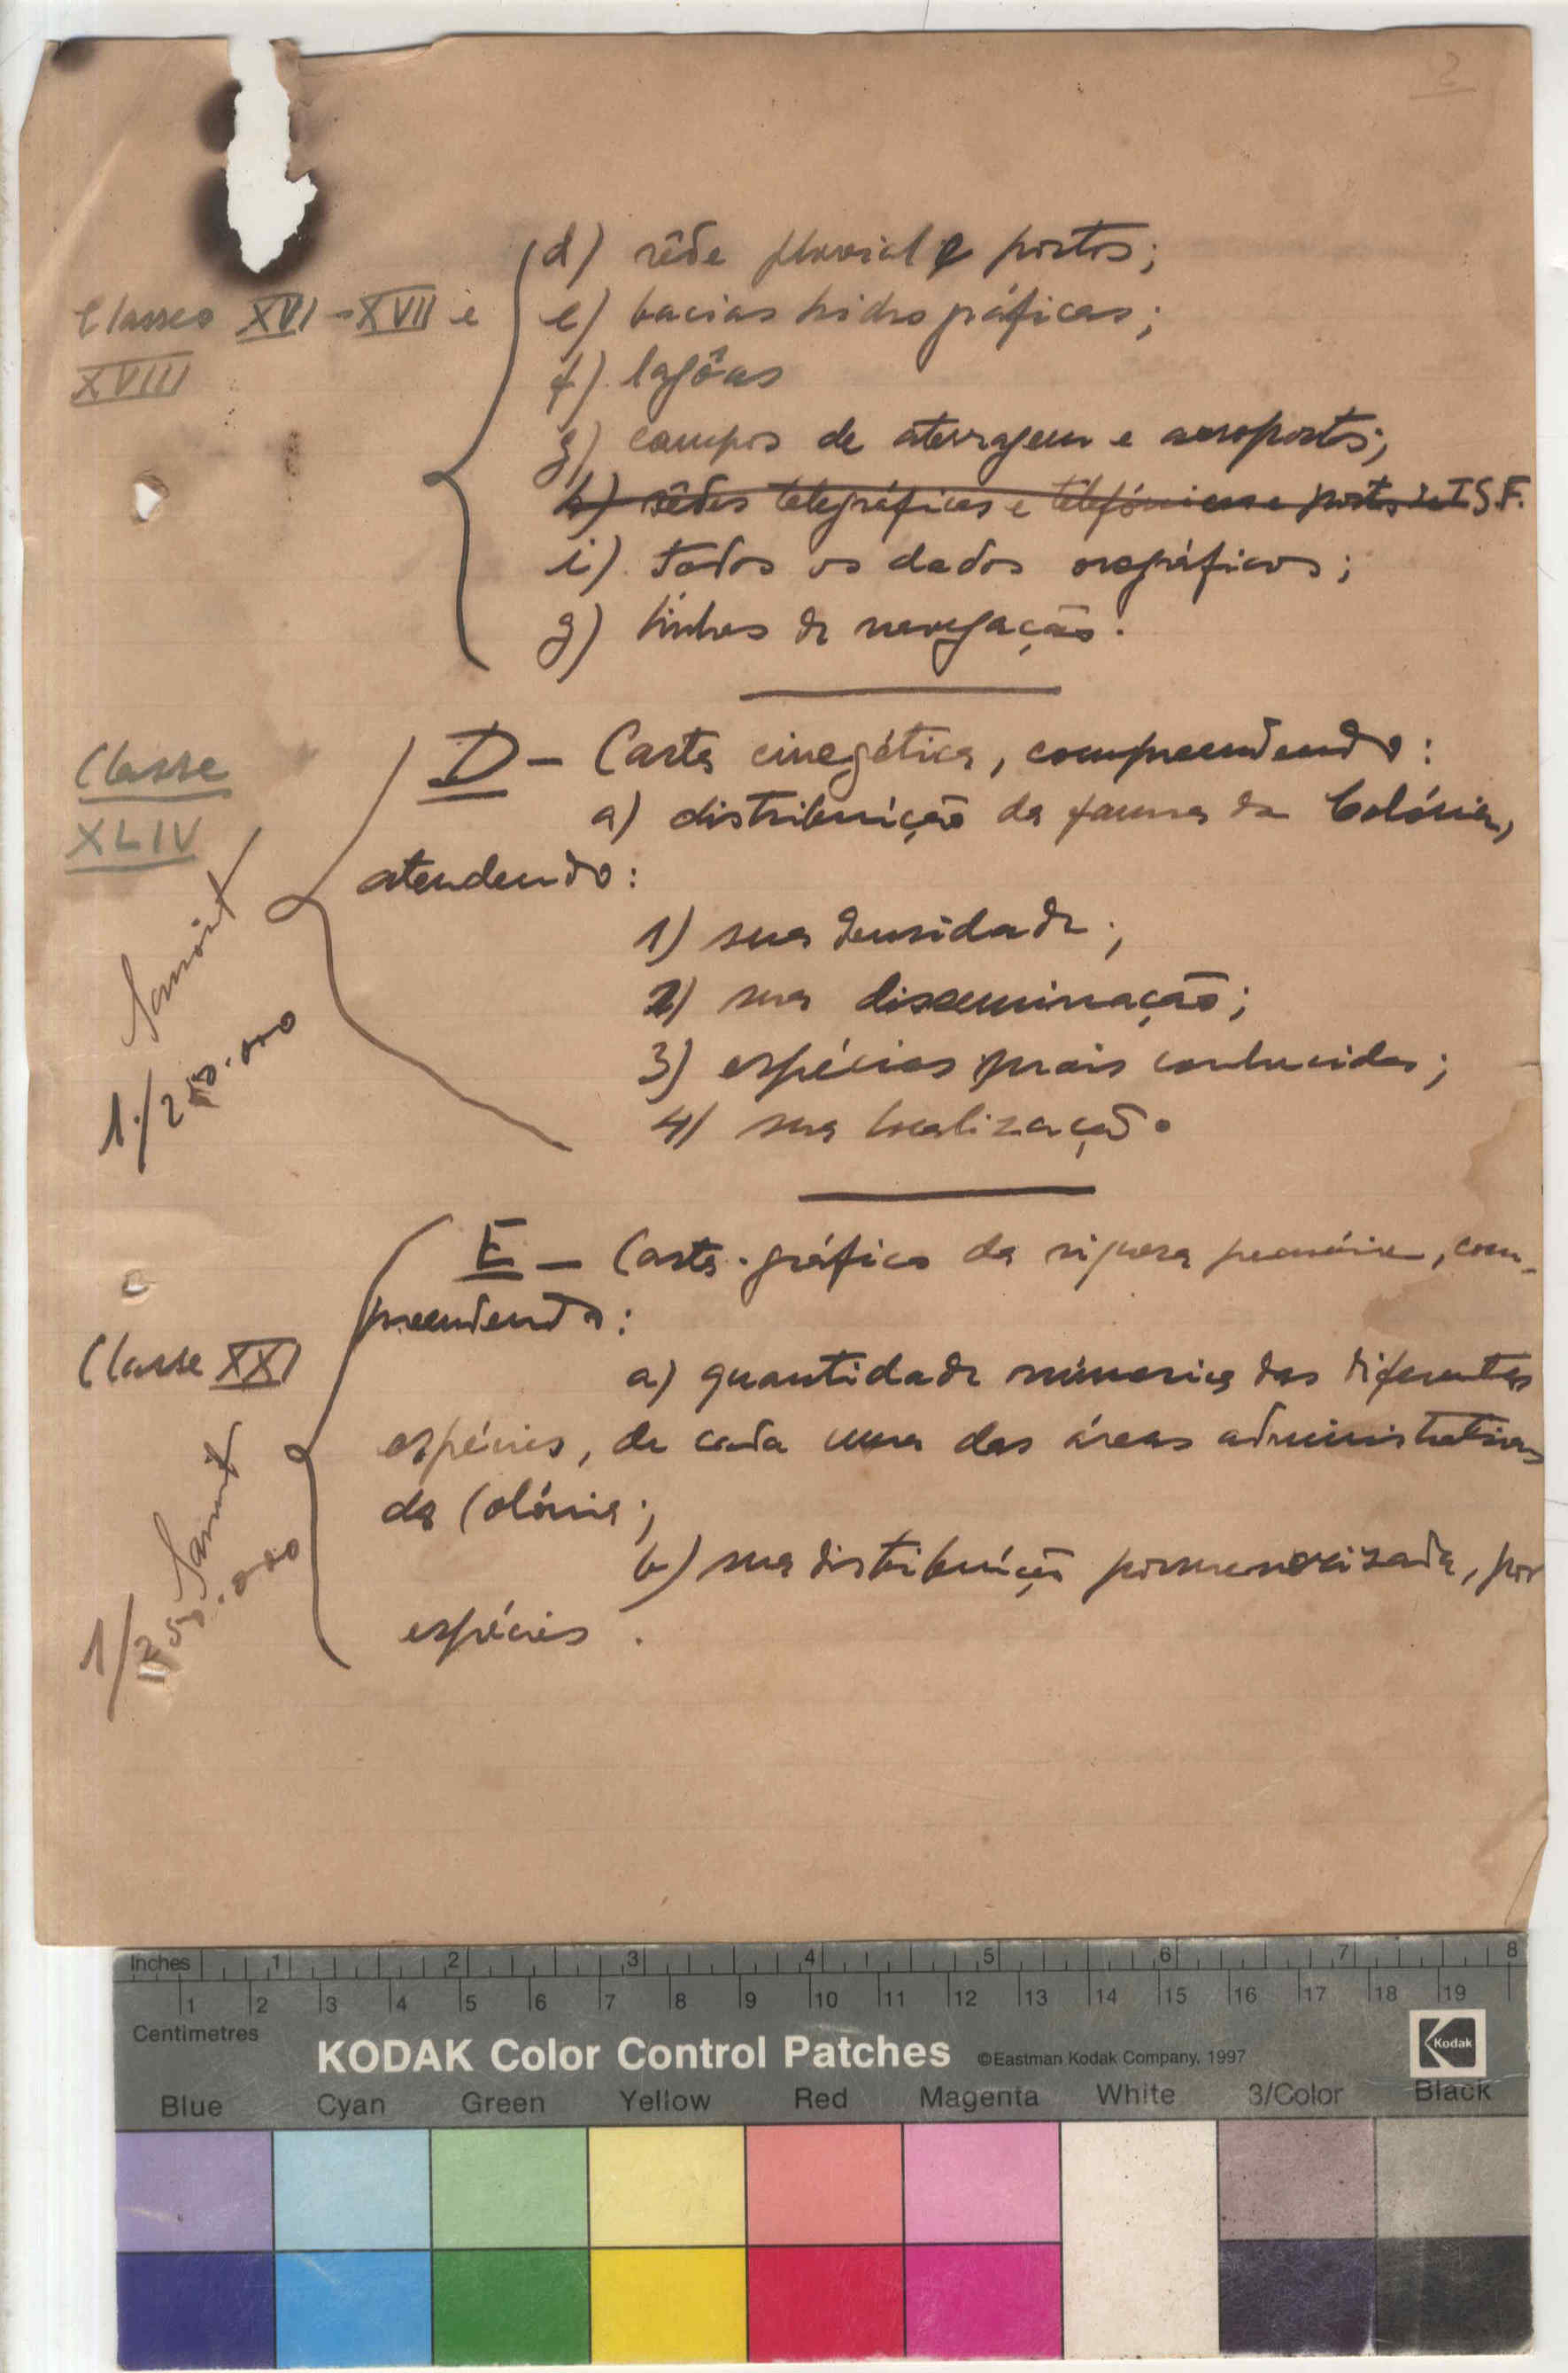 2
d) rêde fluvial e portos;
Classes XVI - XVII e
XVIII
e) bacias hidrográficas;
f) lagôas
g) campos de aterragem e aeroportos;
h) rêdes telegráficas e telefónicas e postos de T.S.F.
i) todos os dados orográficos;
g) linhas de navegação.
Classe
XLIV
D — Carta cinegética, compreendendo:
a) distribuição da fauna da Colónia,
atendendo:
1) sua densidade;
2) sua disseminação;
3) espécies mais conhecidas;
4) sua localização.
1/250.000
E — Carta-gráfico da riqueza pecuária, com-
preendendo:
Classe XXI
a) quantidade númerica das diferentes
espécies, de cada uma das áreas administrativas
da Colónia;
b) sua distribuição pormenorizada, por
espécies.
1/250.000
Inches 1 2 3 4 5 6 7 8
1 2 3 4 5 6 7 8 9 10 11 12 13 14 15 16 17 18 19
Centimetres
KODAK Color Control Patches ©Eastman Kodak Company, 1997 Kodak
Blue Cyan Green Yellow Red Magenta White 3/Color Black